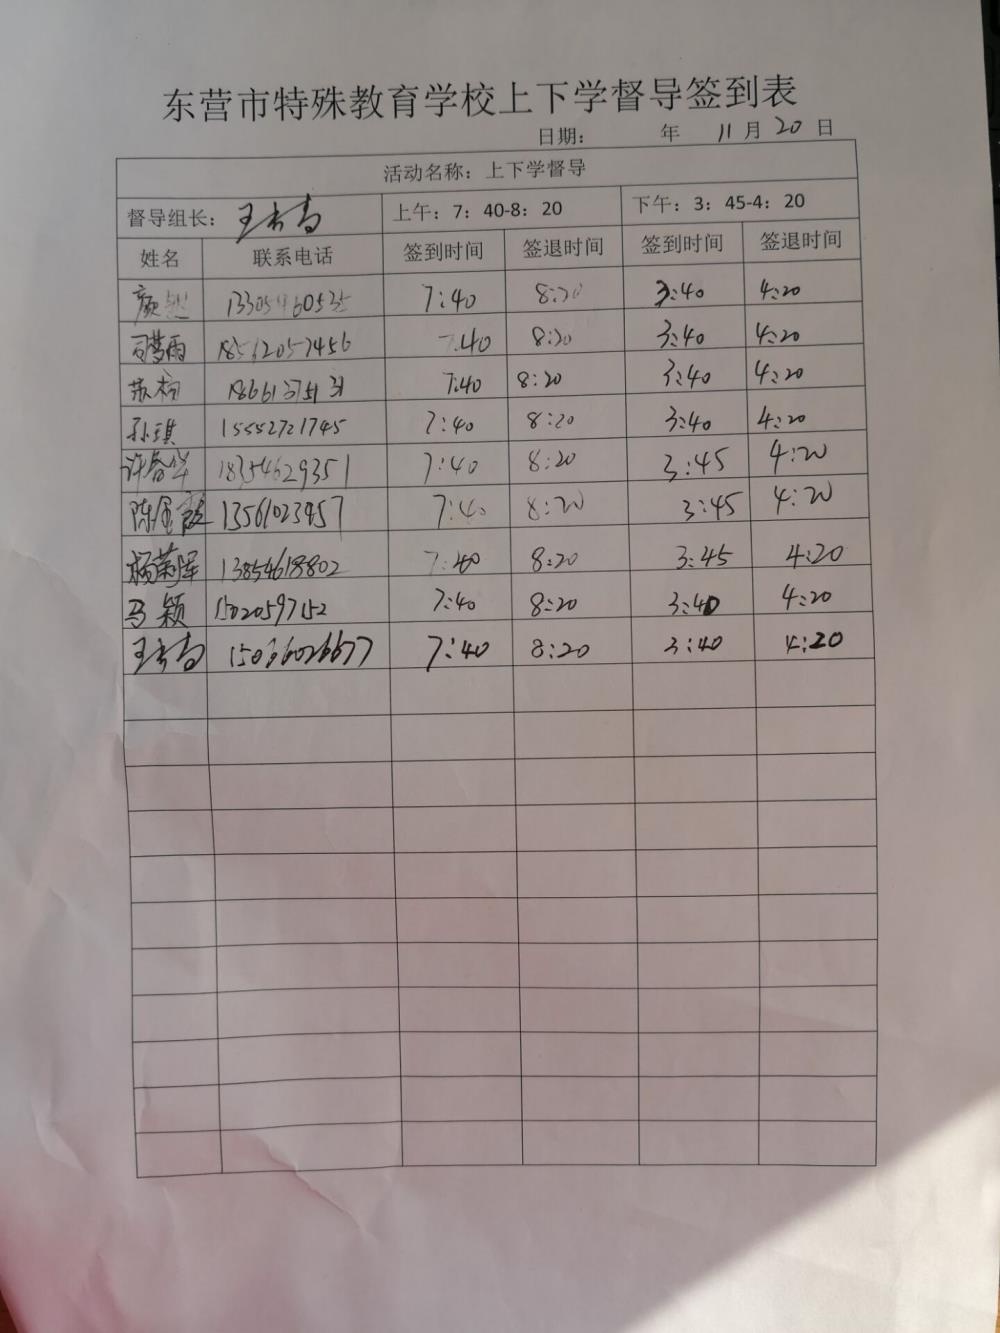 东营市特殊教育学校上下学督导签到表
日期： 年 11月20日
活动名称：上下学督导
督导组长： 上午：7：40-8：20 下午：3：45-4：20
姓名 联系电话 签到时间 签退时间 签到时间 签退时间
颜 7:40 8:20 3:40 4:20
司梦雨 18512057456 7:40 8:20 3:40 4:20
苏 7:40 8:20 3:40 4:20
孙琪 15552721745 7:40 8:20 3:40 4:20
许春华 18354629351 7:40 8:20 3:45 4:20
陈金霞 13561023957 7:40 8:20 3:45 4:20
杨菊辉 13854618802 7:40 8:20 3:45 4:20
马颖 15020597152 7:40 8:20 3:40 4:20
王 15066026677 7:40 8:20 3:40 4:20